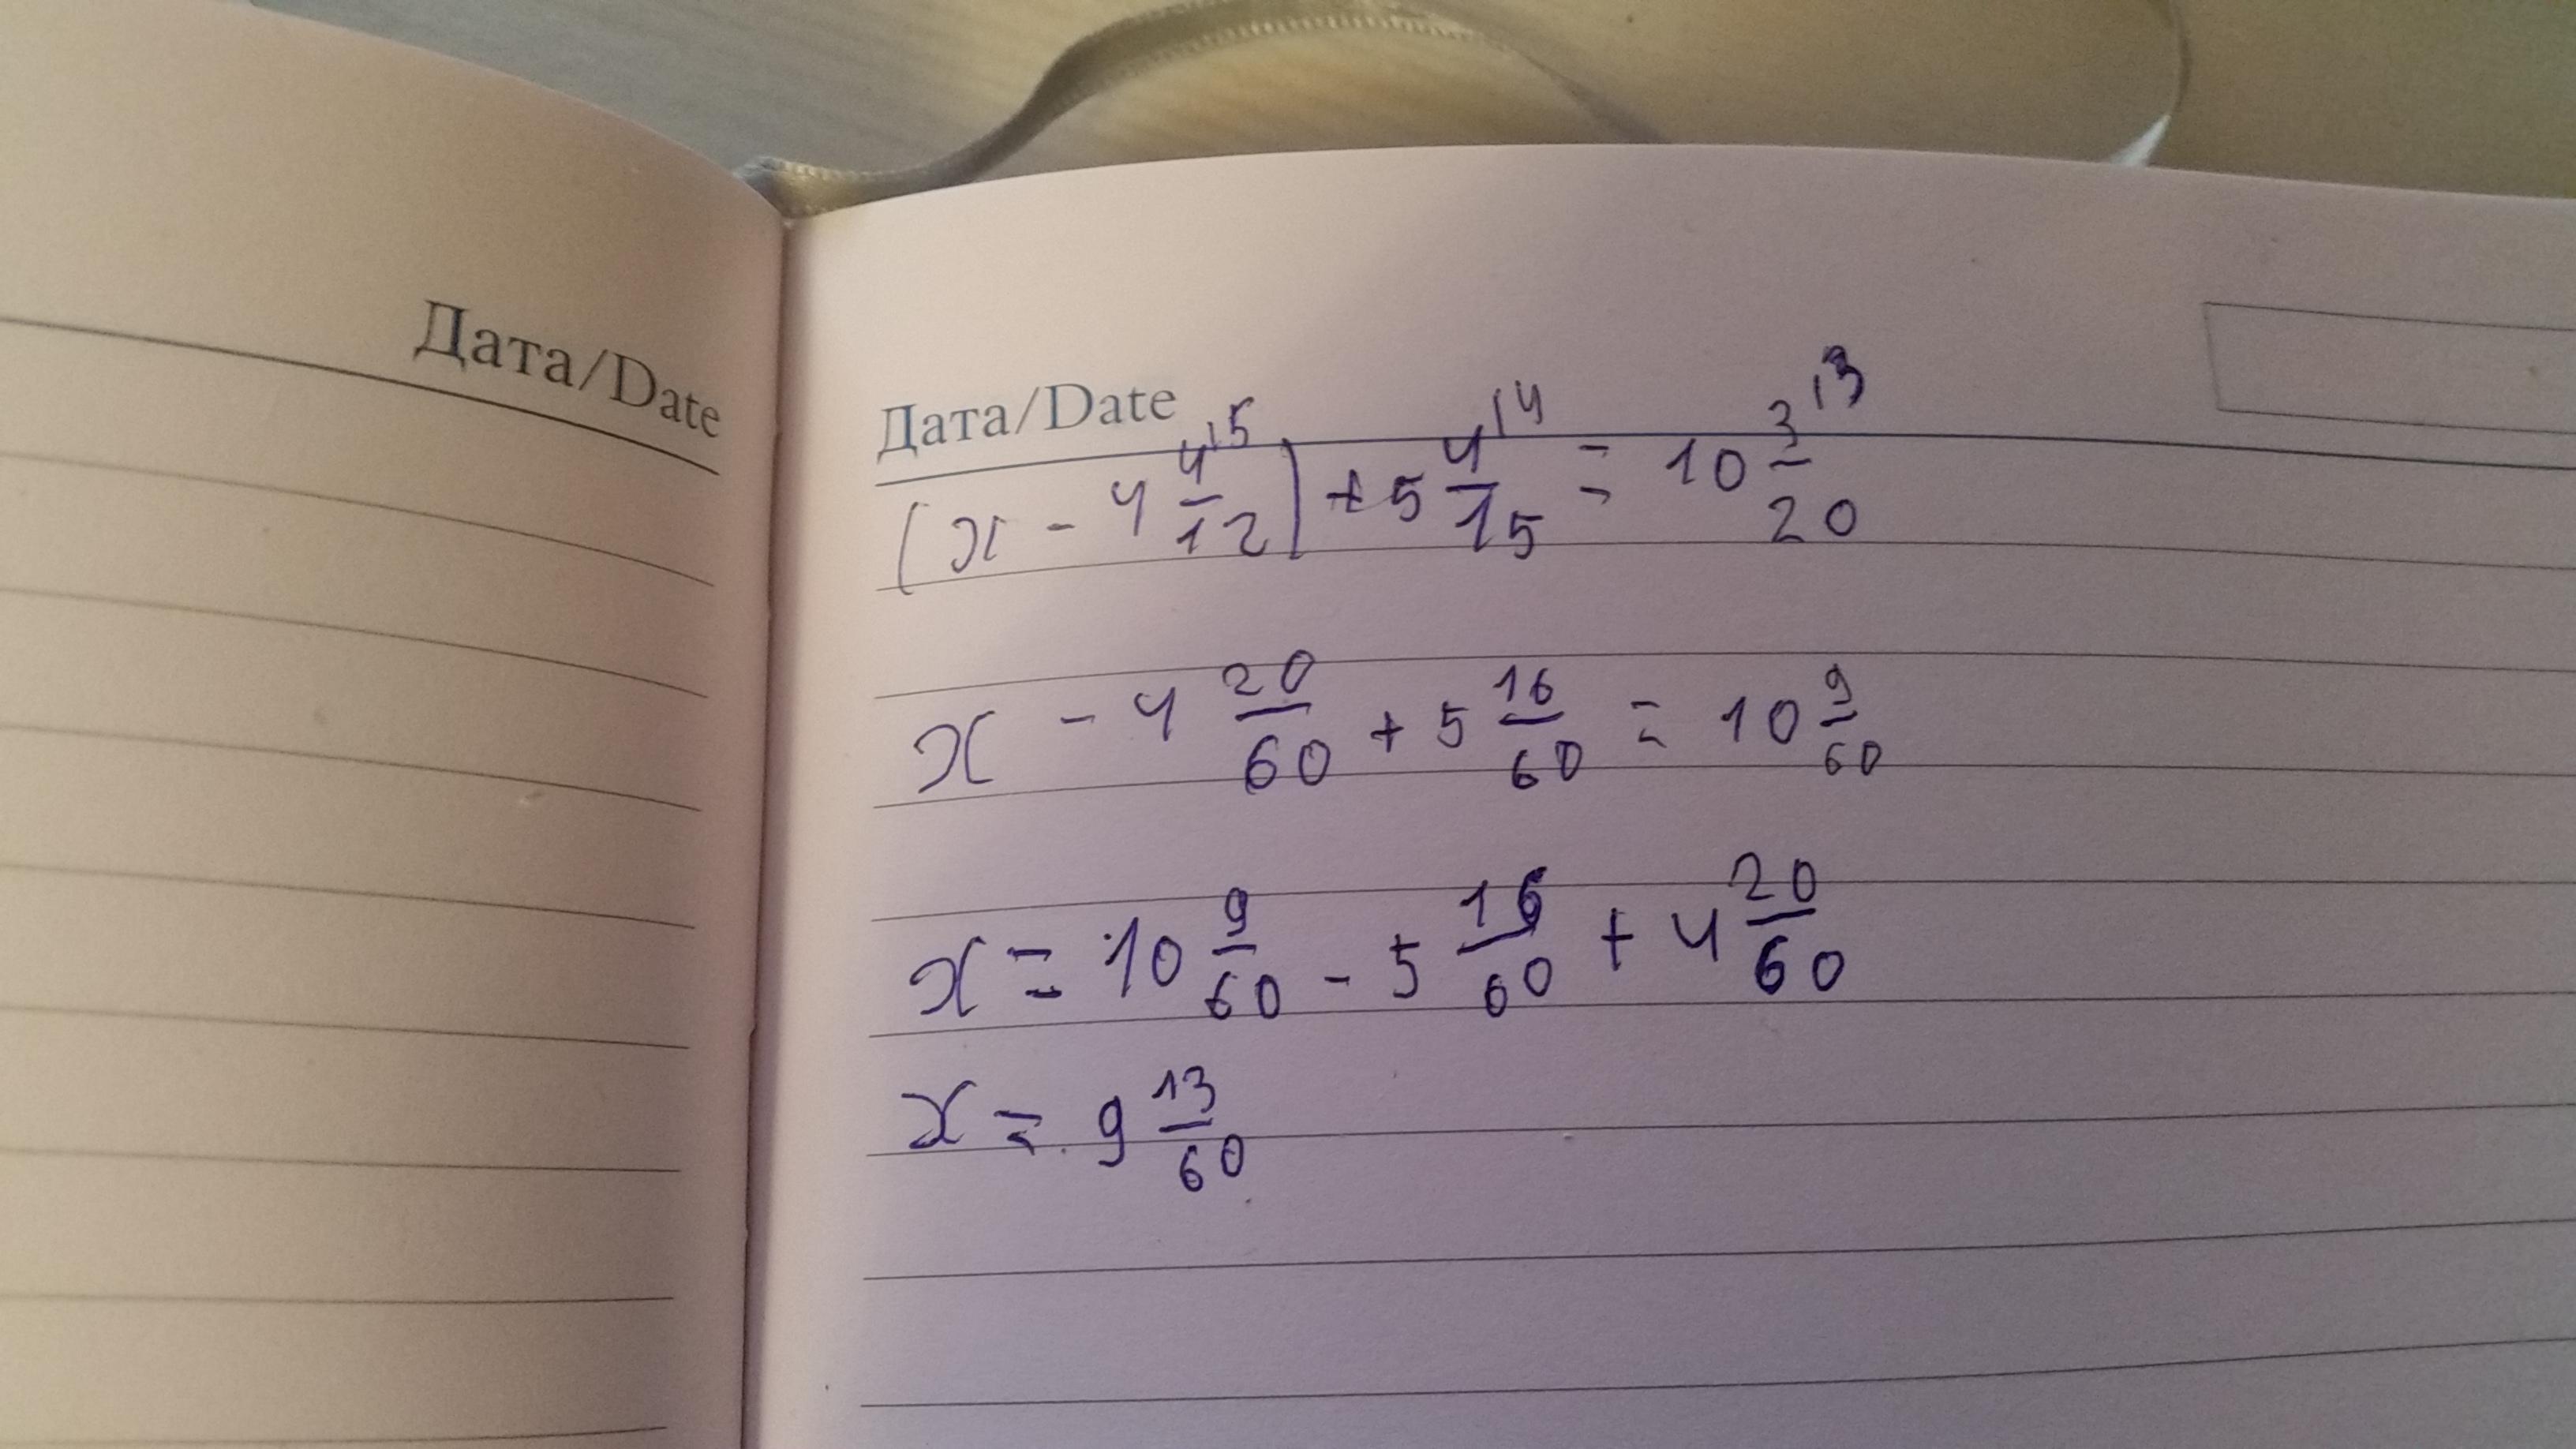 Дата/Date
Дата/Date
(x - 4 4/12 |5) + 5 4/15 |4 = 10 3/20 |3
x - 4 20/60 + 5 16/60 = 10 9/60
x = 10 9/60 - 5 16/60 + 4 20/60
x = 9 13/60